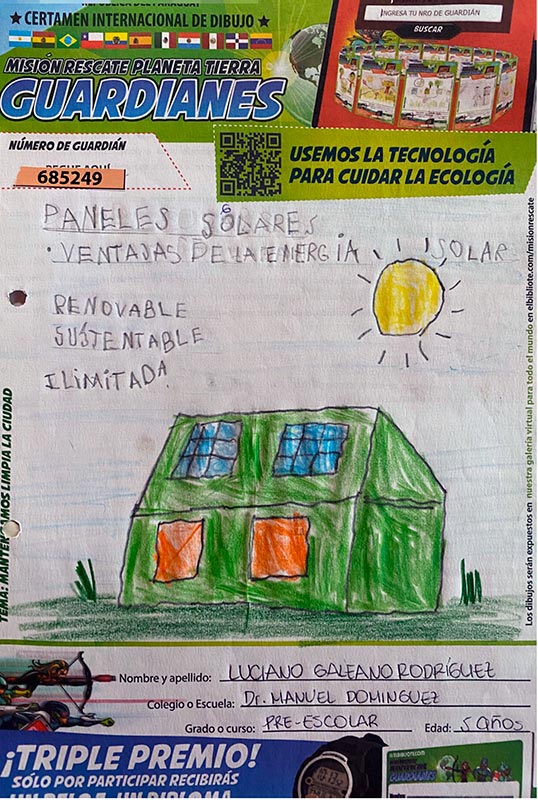 REPÚBLICA DEL PARAGUAY
CERTAMEN INTERNACIONAL DE DIBUJO
MISIÓN RESCATE PLANETA TIERRA
GUARDIANES
INGRESA TU NRO DE GUARDIÁN
BUSCAR
NÚMERO DE GUARDIÁN
PEGUE AQUÍ
685249
USEMOS LA TECNOLOGÍA
PARA CUIDAR LA ECOLOGÍA
PANELES SOLARES
· VENTAJAS DE LA ENERGIA SOLAR
RENOVABLE
SUSTENTABLE
ILIMITADA.
TEMA: MANTENGAMOS LIMPIA LA CIUDAD
Los dibujos serán expuestos en nuestra galería virtual para todo el mundo en elbibliote.com/misionrescate
Nombre y apellido: LUCIANO GALEANO RODRÍGUEZ
Colegio o Escuela: Dr. MANUEL DOMINGUEZ
Grado o curso: PRE-ESCOLAR Edad: 5 años
¡TRIPLE PREMIO!
SÓLO POR PARTICIPAR RECIBIRÁS
UN RELOJ, UN DIPLOMA
GUARDIANES